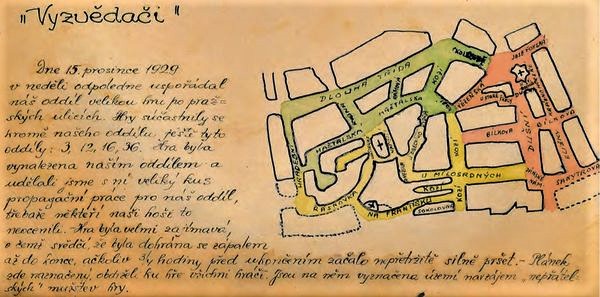 „Vyzvědači"
Dne 15. prosince 1929
v neděli odpoledne uspořádal
náš oddíl velikou hru po praž-
ských ulicích. Hry súčastnily se
kromě našeho oddílu ještě tyto
oddíly: 3, 12, 16, 36. Hra byla
vynalezena naším oddílem a
udělali jsme s ní veliký kus
propagační práce pro náš oddíl,
třebaže někteří naši hoši to
neocenili. Hra byla velmi zajímavá,
o čemž svědčí, že byla dohrána se zápalem
až do konce, ačkoliv 3/4 hodiny před ukončením začalo nepřetržitě silně pršet. - Plánek,
zde naznačený, obdrželi ku hře všichni hráči. Jsou na něm vyznačena území navzájem „nepřátel-
ských" mužstev hry.
DLOUHÁ TŘÍDA
KOZÍ
MAŠTALSKÁ
HAŠTALSKÁ
BÍLKOVA
DUŠNÍ
BÍLKOVA
U MILOSRDNÝCH
KOZÍ
KOZÍ
NA FRANTIŠKU
SOKOLOVNA